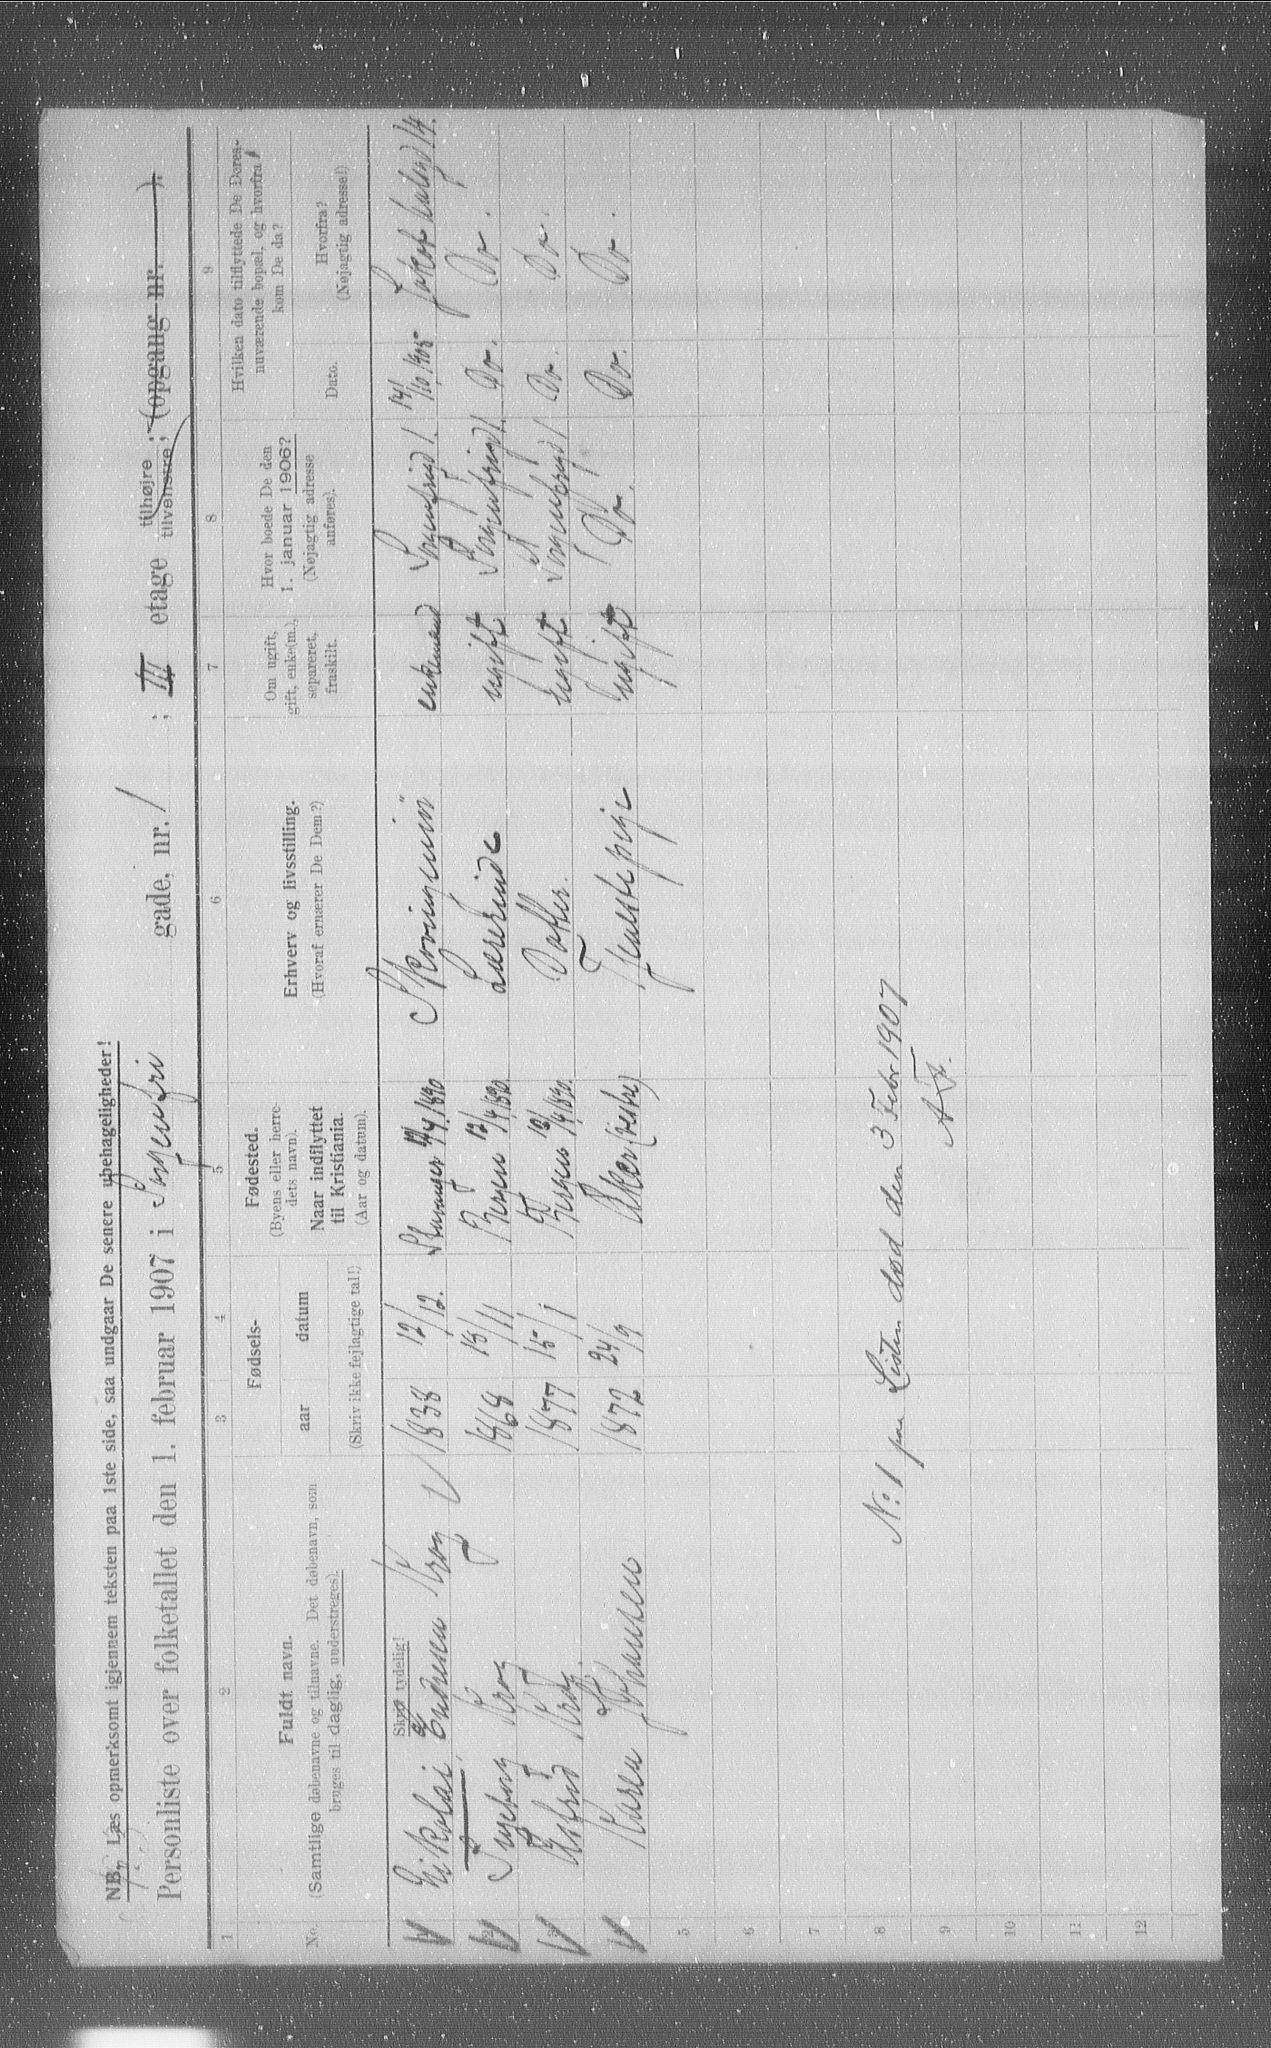 NB. Læs opmerksomt igjennem teksten paa 1ste side, saa undgaar De senere ubehageligheder!
Personliste over folketallet den 1. februar 1907 i Sorgenfri gade, nr. 1 ; III etage tilhøjre ; tilvenstre ; (opgang nr. ).
1 2 3 4 5 6 7 8 9
No.
Fuldt navn.
(Samtlige døbenavne og tilnavne. Det døbenavn, som
bruges til daglig, understreges).
Skriv tydelig!
Fødsels-
aar datum
(Skriv ikke fejlagtige tal!)
Fødested.
(Byens eller herre-
dets navn).
Naar indflyttet
til Kristiania.
(Aar og datum).
Erhverv og livsstilling.
(Hvoraf ernærer De Dem?)
Om ugift,
gift, enke(m.),
separeret,
fraskilt.
Hvor boede De den
1. januar 1906?
(Nøjagtig adresse
anføres).
Hvilken dato tilflyttede De Deres
nuværende bopæl, og hvorfra
kom De da?
Dato.
Hvorfra?
(Nøjagtig adresse!)
Nikolai Endresen Krog 1838 12/12. Stavanger 1890 enkemand Sorgenfrigd 1. 14/10 1905
Ingeborg Krog 1868 15/11 Bergen 12/4 1890 Lærerinde ugift Sorgenfrigd 1. Do. Do.
Astrid Krog. 1877 15/1 Bergen 12/4 1890. Datter. Ugift Sorgenfrigd 1 Do. Do.
Karen Johansen 1872 24/9 Aker Tjenestepige Ugift Do. Do. Do.
5
6
7
8
9
10
11
12
No: 1 paa Listen død den 3 Febr 1907